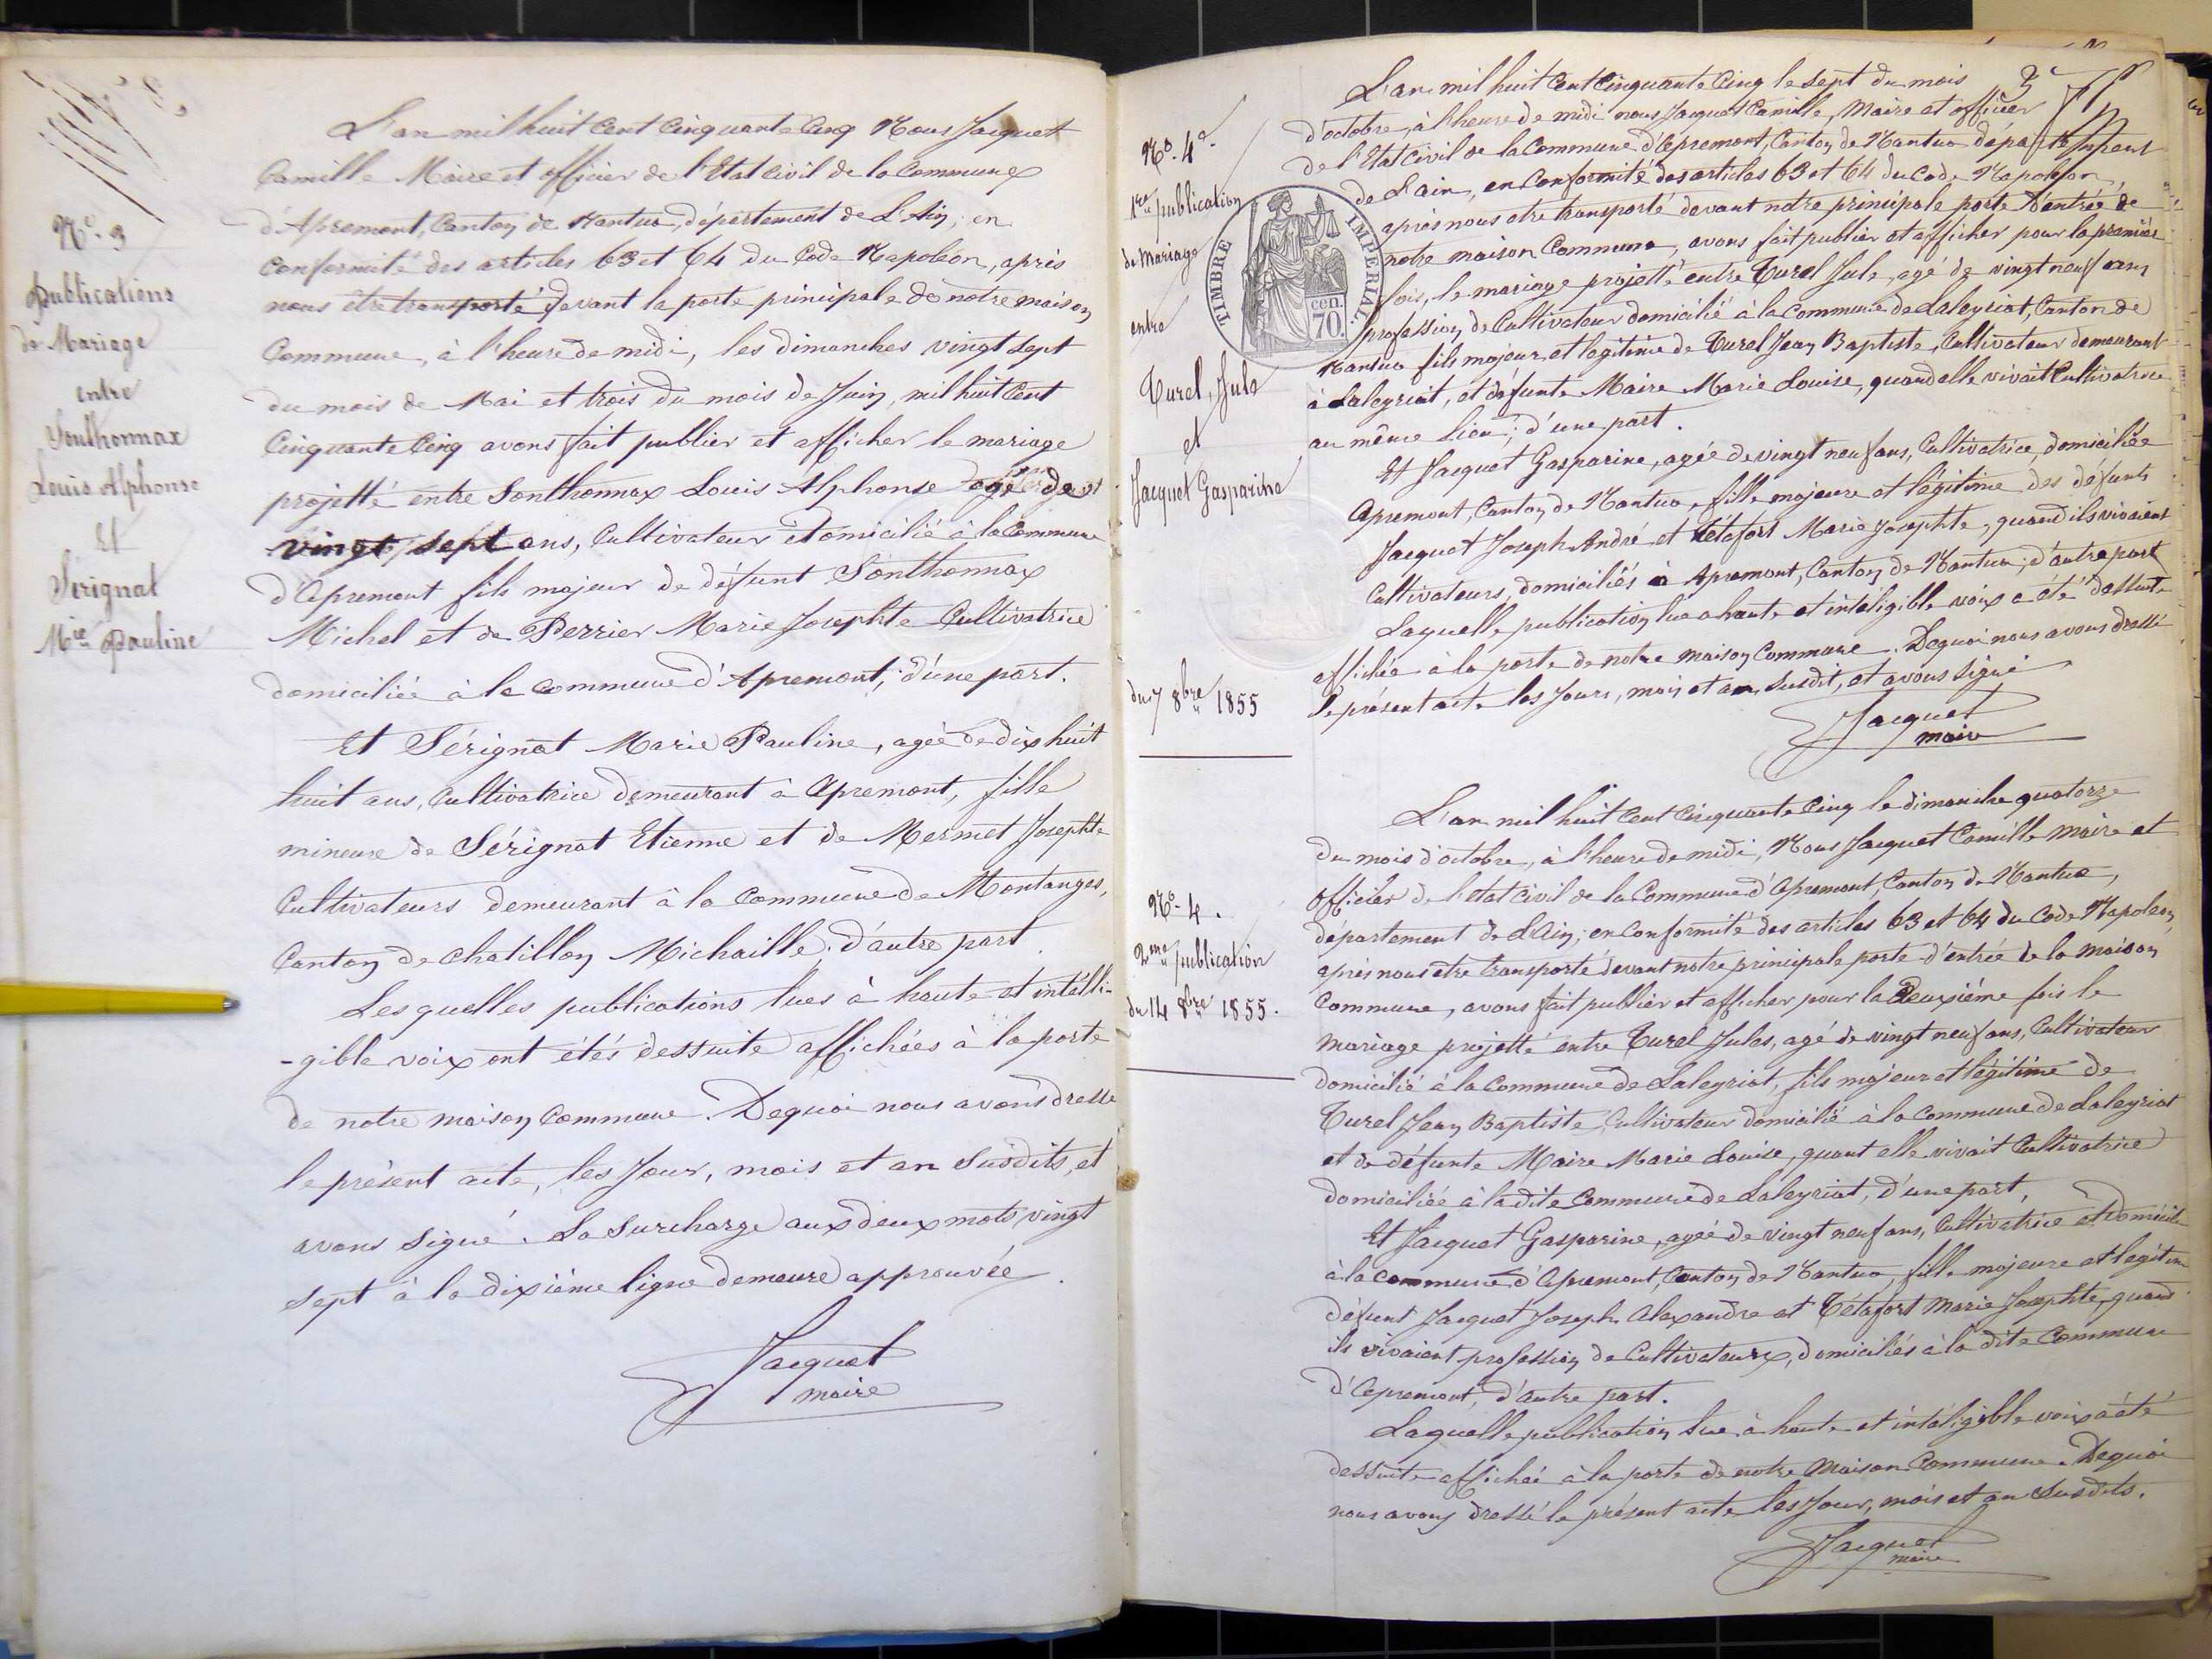 N°. 3
Publications
de Mariage
entre
Sonthonnax
Louis Alphonse
Et
Sérignat
Mie Pauline
L'an mil huit Cent Cinquante Cinq Nous Jacquet
Camille Maire et officier de l'Etat Civil de la Commune
d'Apremont, Canton de Nantua, département de L'Ain, en
Conformité des articles 63 et 64 du Code Napoléon, après
nous être transporté devant la porte principale de notre maison
Commune, à l'heure de midi, les dimanches vingt sept
du mois de Mai et trois du mois de Juin, mil huit Cent
Cinquante Cinq avons fait publier et afficher le mariage
projetté entre Sonthonnax Louis Alphonse agé de
vingt sept ans, Cultivateur domicilié à la Commune
d'Apremont fils majeur de défunt Sonthonnax
Michel et de Perrier Marie Josephte Cultivatrice
domiciliée à la Commune d'Apremont; d'une part.
Et Sérignat Marie Pauline, agée de dix huit
huit ans, Cultivatrice demeurant à Apremont, fille
mineure de Sérignat Etienne et de Mermet Josephte
Cultivateurs demeurant à la Commune de Montanges,
Canton de Chatillon Michaille; d'autre part.
Lesquelles publications lues à haute et intélli-
-gible voix ont étés dessuite affichées à la porte
de notre maison Commune. Dequoi nous avons dressé
le présent acte, les Jour, mois et an susdits, et
avons signé. La Surcharge aux deux mots vingt
sept à la dixième ligne demeure approuvée.
Jacquet
maire
N°. 4
1re publication
de Mariage
entre
Turel, Jule
et
Jacquet Gasparine
du 7 8bre 1855
TIMBRE IMPERIAL
70 cen.
3
L'an mil huit Cent Cinquante Cinq le sept du mois
d'octobre, à l'heure de midi nous Jacquet Camille, Maire et officier
de l'Etat Civil de la Commune d'Apremont, Canton de Nantua département
de L'ain, en Conformité des articles 63 et 64 du Code Napoléon,
après nous etre transporté devant notre principale porte d'entrée de
notre maison Commune, avons fait publier et afficher pour la première
fois, le mariage projetté entre Turel Jule, agé de vingt neuf ans
profession de Cultivateur domicilié à la Commune de Laleyriat, Canton de
Nantua fils majeur et légitime de Turel Jean Baptiste, Cultivateur demeurant
à Laleyriat, et défunte Maire Marie Louise, quand elle vivait Cultivatrice
au même lieu; d'une part.
Et Jacquet Gasparine, agée de vingt neuf ans, Cultivatrice, domiciliée
Apremont, Canton de Nantua, fille majeure et légitime des défunts
Jacquet Joseph André et Tétafort Marie Josephte, quand ils vivaient
Cultivateurs, domiciliés à Apremont, Canton de Nantua; d'autre part
Laquelle publication lue a haute et inteligible voix a été dessuite
affichée à la porte de notre maison Commune. Dequoi nous avons dressé
le présent acte les Jours, mois et an susdit, et avons signé
Jacquet
maire
N°. 4.
2me publication
du 14 8bre 1855.
L'an mil huit Cent Cinquante Cinq le dimanche quatorze
du mois d'octobre, à l'heure de midi, Nous Jacquet Camille Maire et
officier de l'état Civil de la Commune d'Apremont, Canton de Nantua,
département de L'Ain; en Conformité des articles 63 et 64 du Code Napoléon,
après nous etre transporté devant notre principale porte d'entrée de la maison
Commune, avons fait publier et afficher pour la deuxième fois le
mariage projetté entre Turel Jules, agé de vingt neuf ans, Cultivateur
domicilié à la Commune de Laleyriat, fils majeur et légitime de
Turel Jean Baptiste Cultivateur domicilié à la Commune de Laleyriat
et de défunte Maire Marie Louise, quant elle vivait Cultivatrice
domiciliée à la dite Commune de Laleyriat, d'une part,
Et Jacquet Gasparine, agée de vingt neuf ans, Cultivatrice et domicilié
à la Commune d'Apremont, Canton de Nantua, fille majeure et légitime
défunt Jacquet Joseph Alexandre et Tétafort Marie Josephte, quand
ils vivaient profession de Cultivateurs, domiciliés à la dite Commune
d'Apremont, d'autre part.
Laquelle publication lue à haute et inteligible voix a été
dessuite affichée à la porte de notre Maison Commune. Dequoi
nous avons dressé le présent acte les Jour, mois et an susdits.
Jacquet
maire